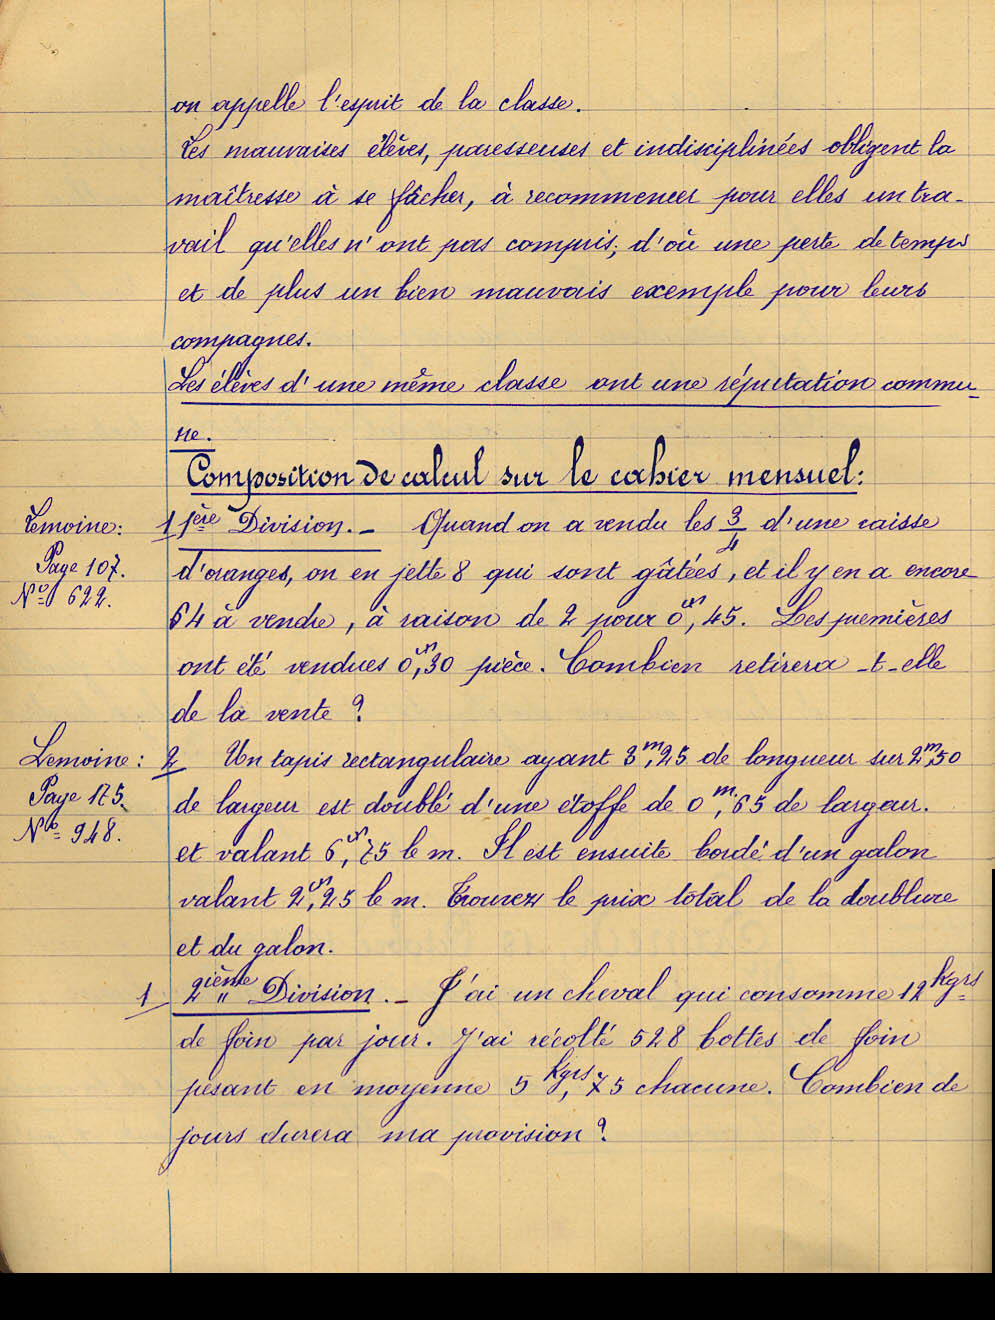 on appelle l'esprit de la classe.
Les mauvaises élèves, paresseuses et indisciplinées obligent la
maîtresse à se fâcher, à recommencer pour elles un tra-
vail qu'elles n'ont pas compris; d'où une perte de temps
et de plus un bien mauvais exemple pour leurs
compagnes.
Les élèves d'une même classe ont une réputation commu-
ne.
Composition de calcul sur le cahier mensuel:
Lemoine: 1 1ère Division. - Quand on a vendu les 3/4 d'une caisse
Page 107. d'oranges, on en jette 8 qui sont gâtées, et il y en a encore
No 622. 64 à vendre, à raison de 2 pour 0fr,45. Les premières
ont été vendues 0fr,30 pièce. Combien retirera-t-elle
de la vente ?
Lemoine: 2 Un tapis rectangulaire ayant 3m,25 de longueur sur 2m,50
Page 175. de largeur est doublé d'une étoffe de 0m,65 de largeur.
No 948. et valant 6fr,75 le m. Il est ensuite bordé d'un galon
valant 2fr,25 le m. Trouvez le prix total de la doublure
et du galon.
1 2ième Division. - J'ai un cheval qui consomme 12 kgrs
de foin par jour. J'ai récolté 528 bottes de foin
pesant en moyenne 5 kgrs,75 chacune. Combien de
jours durera ma provision ?